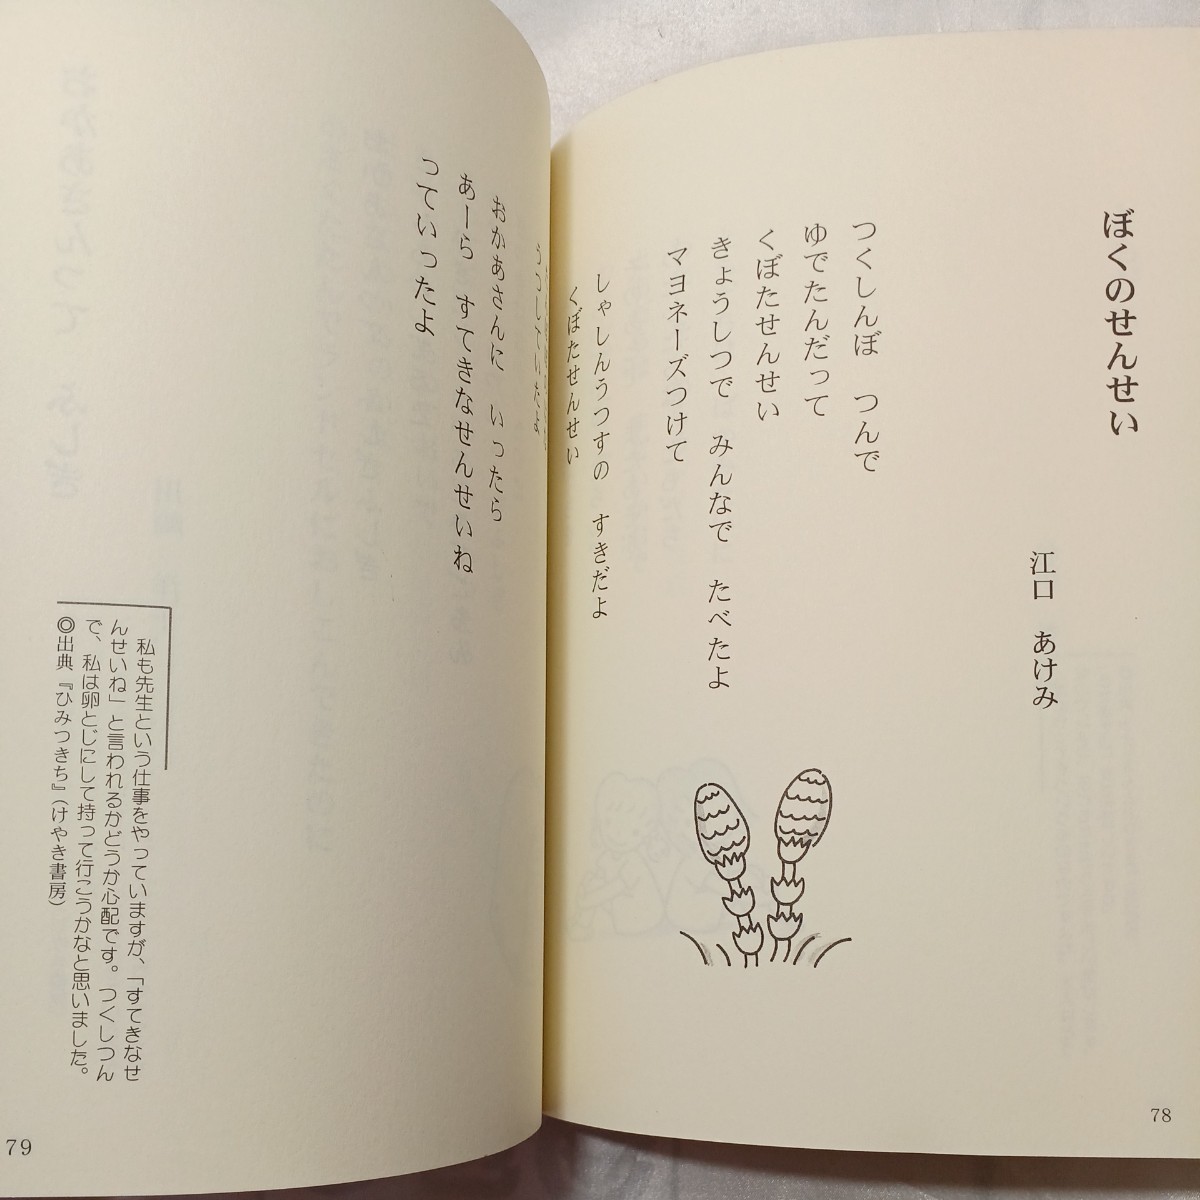 ぼくのせんせい
江口 あけみ
つくしんぼ つんで
ゆでたんだって
くぼたせんせい
きょうしつで みんなで たべたよ
マヨネーズつけて
しゃしんうつすの すきだよ
くぼたせんせい
うつしていたよ
おかあさんに いったら
あーら すてきなせんせいね
っていったよ
私も先生という仕事をやっていますが、「すてきなせ
んせいね」と言われるかどうか心配です。つくしつん
で、私は卵とじにして持って行こうかなと思いました。
◎出典『ひみつきち』(けやき書房)
78
79